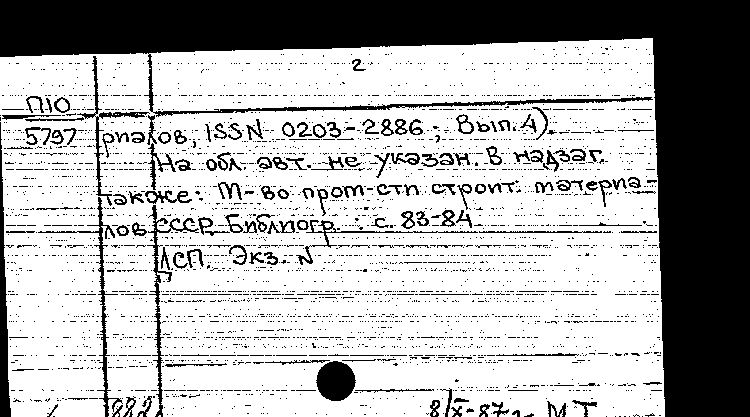 2
П10
5797 риалов, ISSN 0203-2886; Вып. 4).
На обл. авт. не указан. В надзаг.
также: М-во пром-сти строит. материа-
лов СССР. Библиогр.: с. 83-84
ДСП. Экз. N
882 8/X-87г. М.Т.